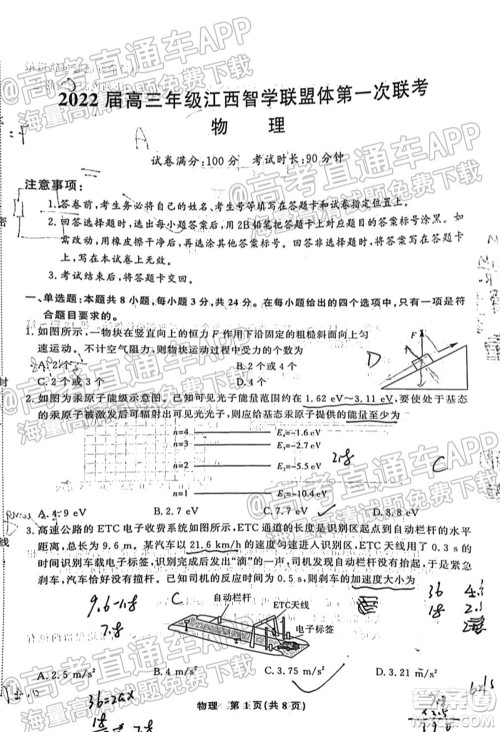 2022 届高三年级江西智学联盟体第一次联考
物 理
试卷满分:100分 考试时长:90分钟
注意事项:
1. 答卷前,考生务必将自己的姓名、考生号等填写在答题卡和试卷指定位置上。
2. 回答选择题时,选出每小题答案后,用2B铅笔把答题卡上对应题目的答案标号涂黑。如
需改动,用橡皮擦干净后,再选涂其他答案标号。回答非选择题时,将答案写在答题卡
上,写在本试卷上无效。
3. 考试结束后,将答题卡交回。
一、单选题:本题共8小题,每小题3分,共24分。在每小题给出的四个选项中,只有一项是符
合题目要求的。
1. 如图所示,一物块在竖直向上的恒力F作用下沿固定的粗糙斜面向上匀
速运动。不计空气阻力,则物块运动过程中受力个数为
A. 2个 B. 3个
C. 2个或3个 D. 2个或4个
D
F
2. 如图为汞原子能级示意图。已知可见光光子能量范围约在1.62 eV~3.11 eV,要使处于基态
的汞原子被激发后可辐射出可见光光子,则应给基态汞原子提供的能量至少为
n=4 E₄=-1.6 eV
n=3 E₃=-2.7 eV
n=2 E₂=-5.5 eV
n=1 E₁=-10.4 eV
C
A. 4.9 eV B. 2.7 eV C. 7.7 eV D. 8.8 eV
3. 高速公路的ETC电子收费系统如图所示,ETC通道的长度是识别区起点到自动栏杆的水平
距离,总长为9.6 m。某汽车以21.6 km/h的速度匀速进入识别区,ETC天线用了0.3 s的时
间识别车载电子标签,识别完成后发出“滴”的一声,司机发现自动栏杆没有抬起,于是紧急
刹车,汽车恰好没有撞杆。已知司机的反应时间为0.5 s,则刹车的加速度大小为
9.6-1.8
7.8
C
自动栏杆
ETC天线
电子标签
36
18
A. 2.5 m/s² B. 4 m/s² C. 3.75 m/s² D. 3 m/s²
物理 第1页(共8页)
高考直通车APP
海量高清试题免费下载